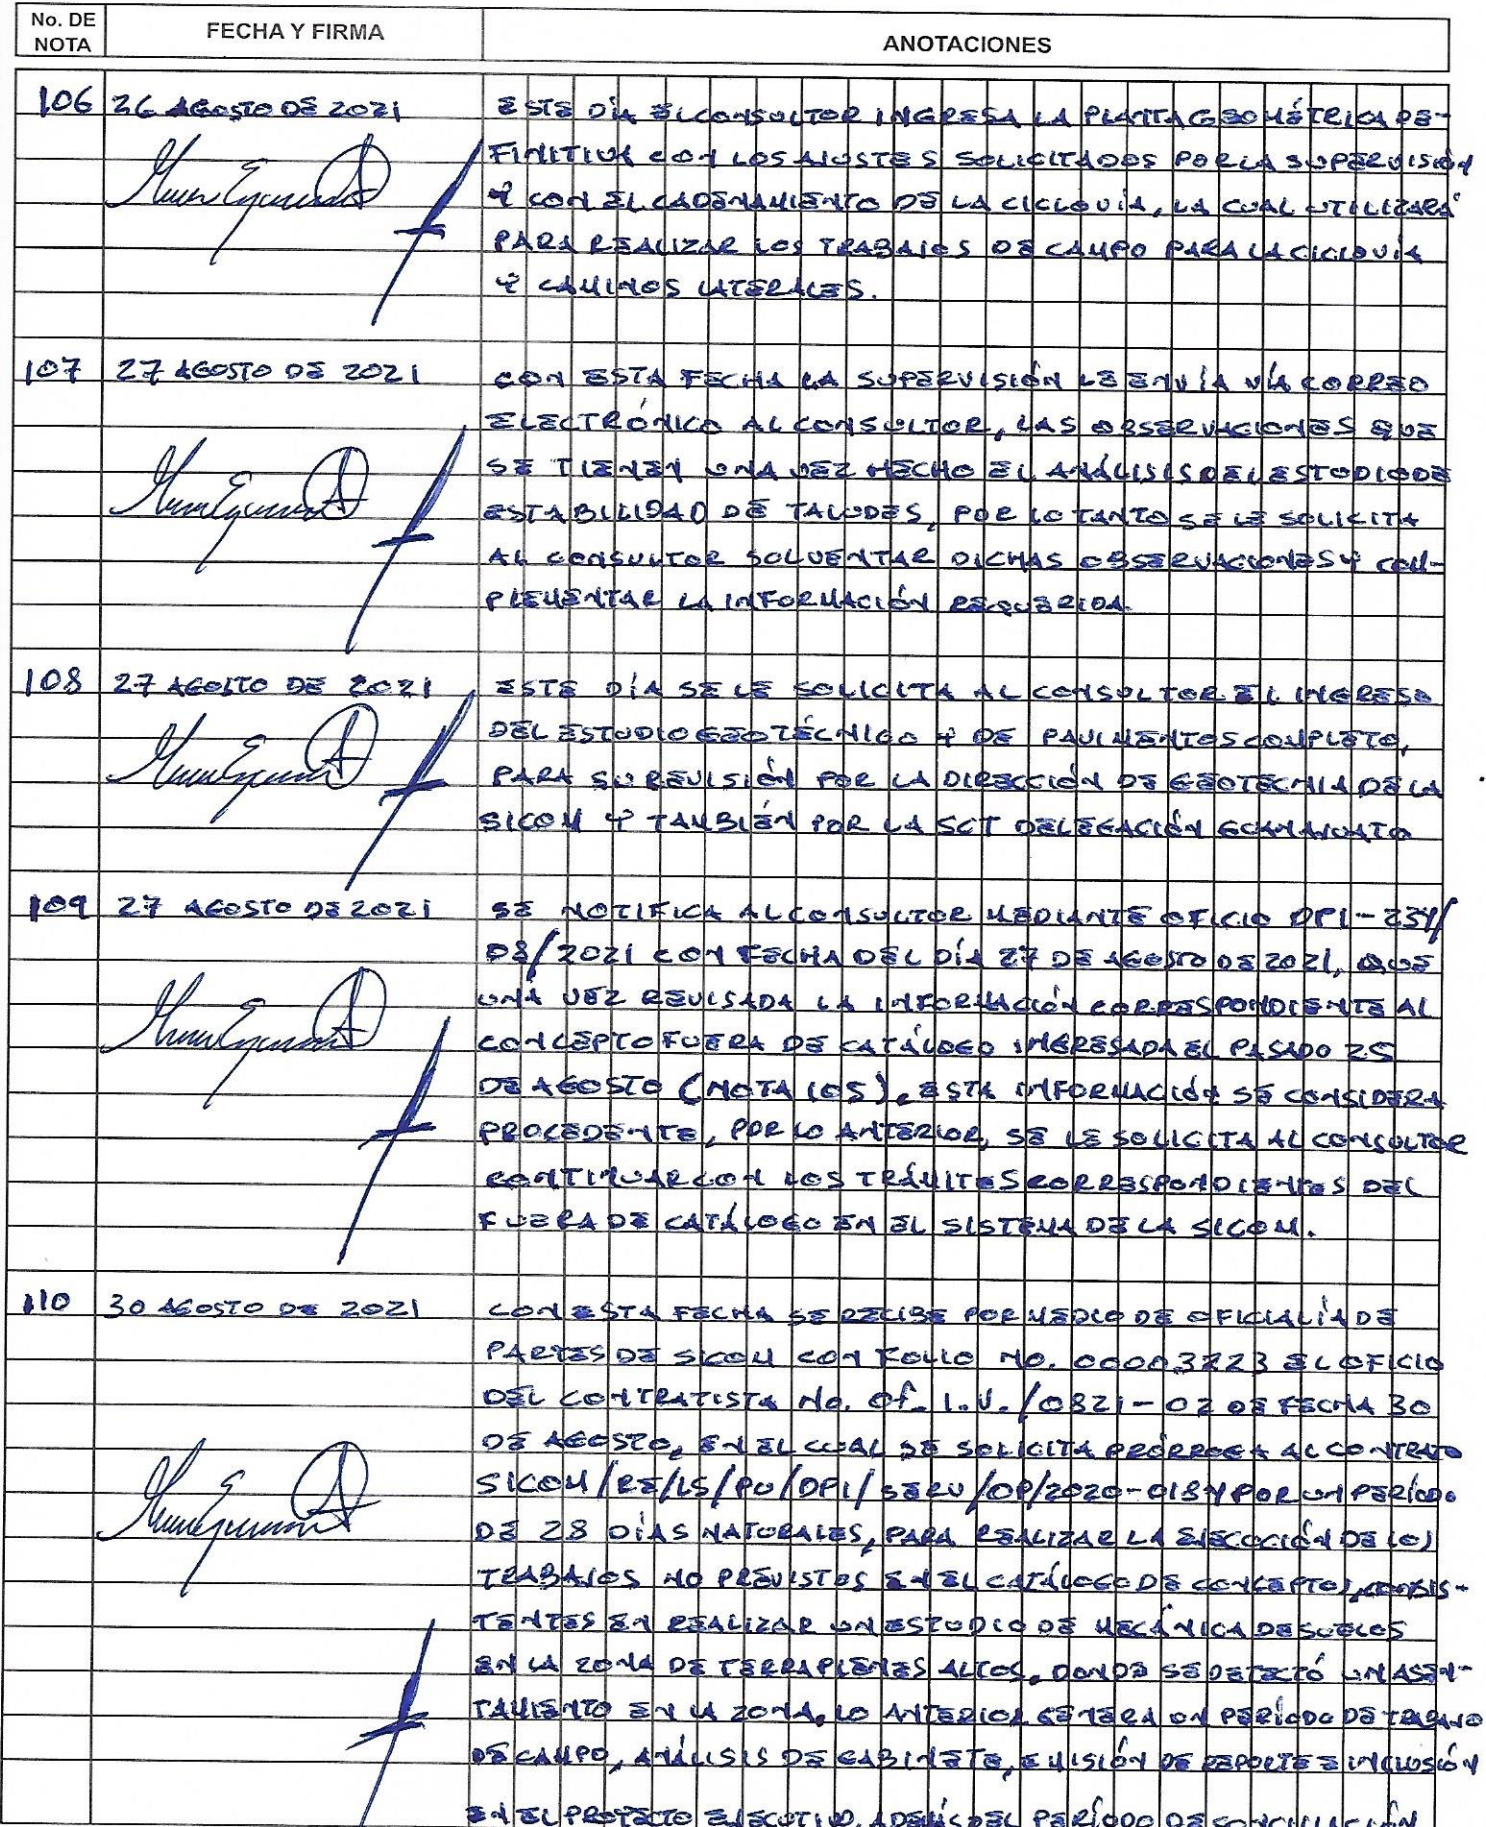 No. DE NOTA FECHA Y FIRMA ANOTACIONES
106 26 AGOSTO DE 2021 ESTE DÍA EL CONSULTOR INGRESA LA PLANTA GEOMÉTRICA DE-
FINITIVA CON LOS AJUSTES SOLICITADOS POR LA SUPERVISIÓN
Y CON EL CADENAMIENTO DE LA CICLOVÍA, LA CUAL UTILIZARÁ
PARA REALIZAR LOS TRABAJOS DE CAMPO PARA LA CICLOVÍA
Y CAMINOS LATERALES.
107 27 AGOSTO DE 2021 CON ESTA FECHA LA SUPERVISIÓN LE ENVÍA VÍA CORREO
ELECTRÓNICO AL CONSULTOR, LAS OBSERVACIONES QUE
SE TIENEN UNA VEZ HECHO EL ANÁLISIS DEL ESTUDIO DE
ESTABILIDAD DE TALUDES, POR LO TANTO SE LE SOLICITA
AL CONSULTOR SOLVENTAR DICHAS OBSERVACIONES Y COM-
PLEMENTAR LA INFORMACIÓN REQUERIDA.
108 27 AGOSTO DE 2021 ESTE DÍA SE LE SOLICITA AL CONSULTOR EL INGRESO
DEL ESTUDIO GEOTÉCNICO Y DE PAVIMENTOS COMPLETO,
PARA SU REVISIÓN POR LA DIRECCIÓN DE GEOTECNIA DE LA
SICOM Y TAMBIÉN POR LA SCT DELEGACIÓN GUANAJUATO
109 27 AGOSTO DE 2021 SE NOTIFICA AL CONSULTOR MEDIANTE OFICIO DPI-234/
08/2021 CON FECHA DEL DÍA 27 DE AGOSTO DE 2021, QUE
UNA VEZ REVISADA LA INFORMACIÓN CORRESPONDIENTE AL
CONCEPTO FUERA DE CATÁLOGO INGRESADA EL PASADO 25
DE AGOSTO (NOTA 105), ESTA INFORMACIÓN SE CONSIDERA
PROCEDENTE, POR LO ANTERIOR, SE LE SOLICITA AL CONSULTOR
CONTINUAR CON LOS TRÁMITES CORRESPONDIENTES DEL
FUERA DE CATÁLOGO EN EL SISTEMA DE LA SICOM.
110 30 AGOSTO DE 2021 CON ESTA FECHA SE RECIBE POR MEDIO DE OFICIALÍA DE
PARTES DE SICOM CON FOLIO NO. 00003223 EL OFICIO
DEL CONTRATISTA No. Of. I.V./0821-02 DE FECHA 30
DE AGOSTO, EN EL CUAL SE SOLICITA PRÓRROGA AL CONTRATO
SICOM/RE/LS/PU/DPI/SERV/OP/2020-0184 POR UN PERÍODO
DE 28 DÍAS NATURALES, PARA REALIZAR LA EJECUCIÓN DE LOS
TRABAJOS NO PREVISTOS EN EL CATÁLOGO DE CONCEPTOS, CONSIS-
TENTES EN REALIZAR UN ESTUDIO DE MECÁNICA DE SUELOS
EN LA ZONA DE TERRAPLENES ALTOS, DONDE SE DETECTÓ UN ASEN-
TAMIENTO EN LA ZONA. LO ANTERIOR GENERA UN PERÍODO DE TRABAJO
DE CAMPO, ANÁLISIS DE GABINETE, EMISIÓN DE REPORTE E INCLUSIÓN
EN EL PROYECTO EJECUTIVO, ADEMÁS DEL PERÍODO DE CONCILIACIÓN